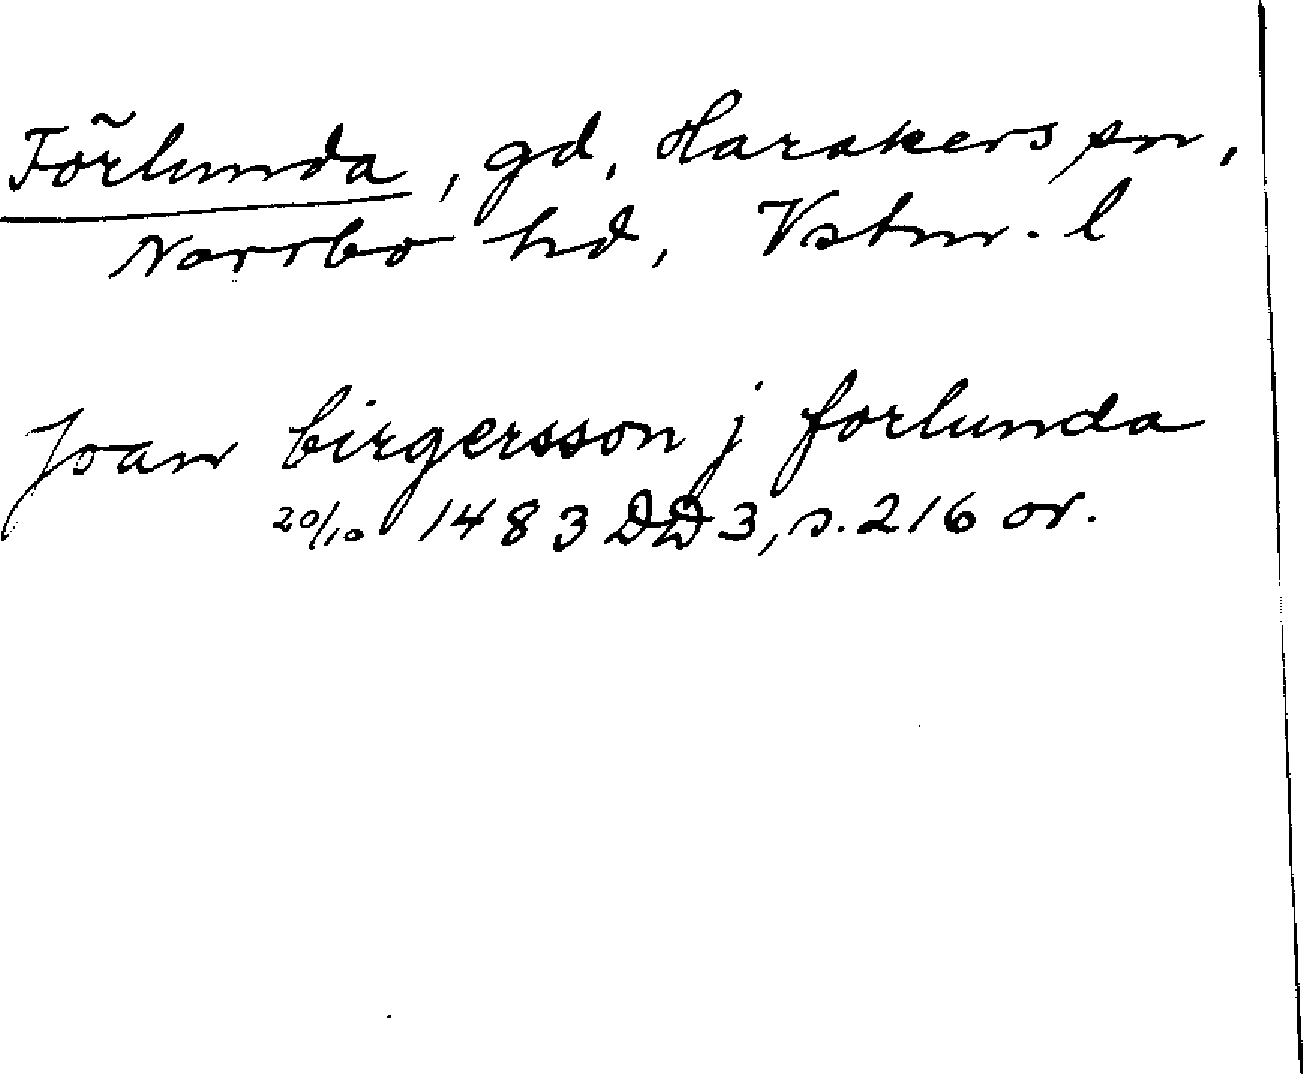 Förlunda, gd, Harakers sn,
Norrbo hd, Vstm. l
Joan birgersson j forlunda
20/10 1483 DD 3, s. 216 or.